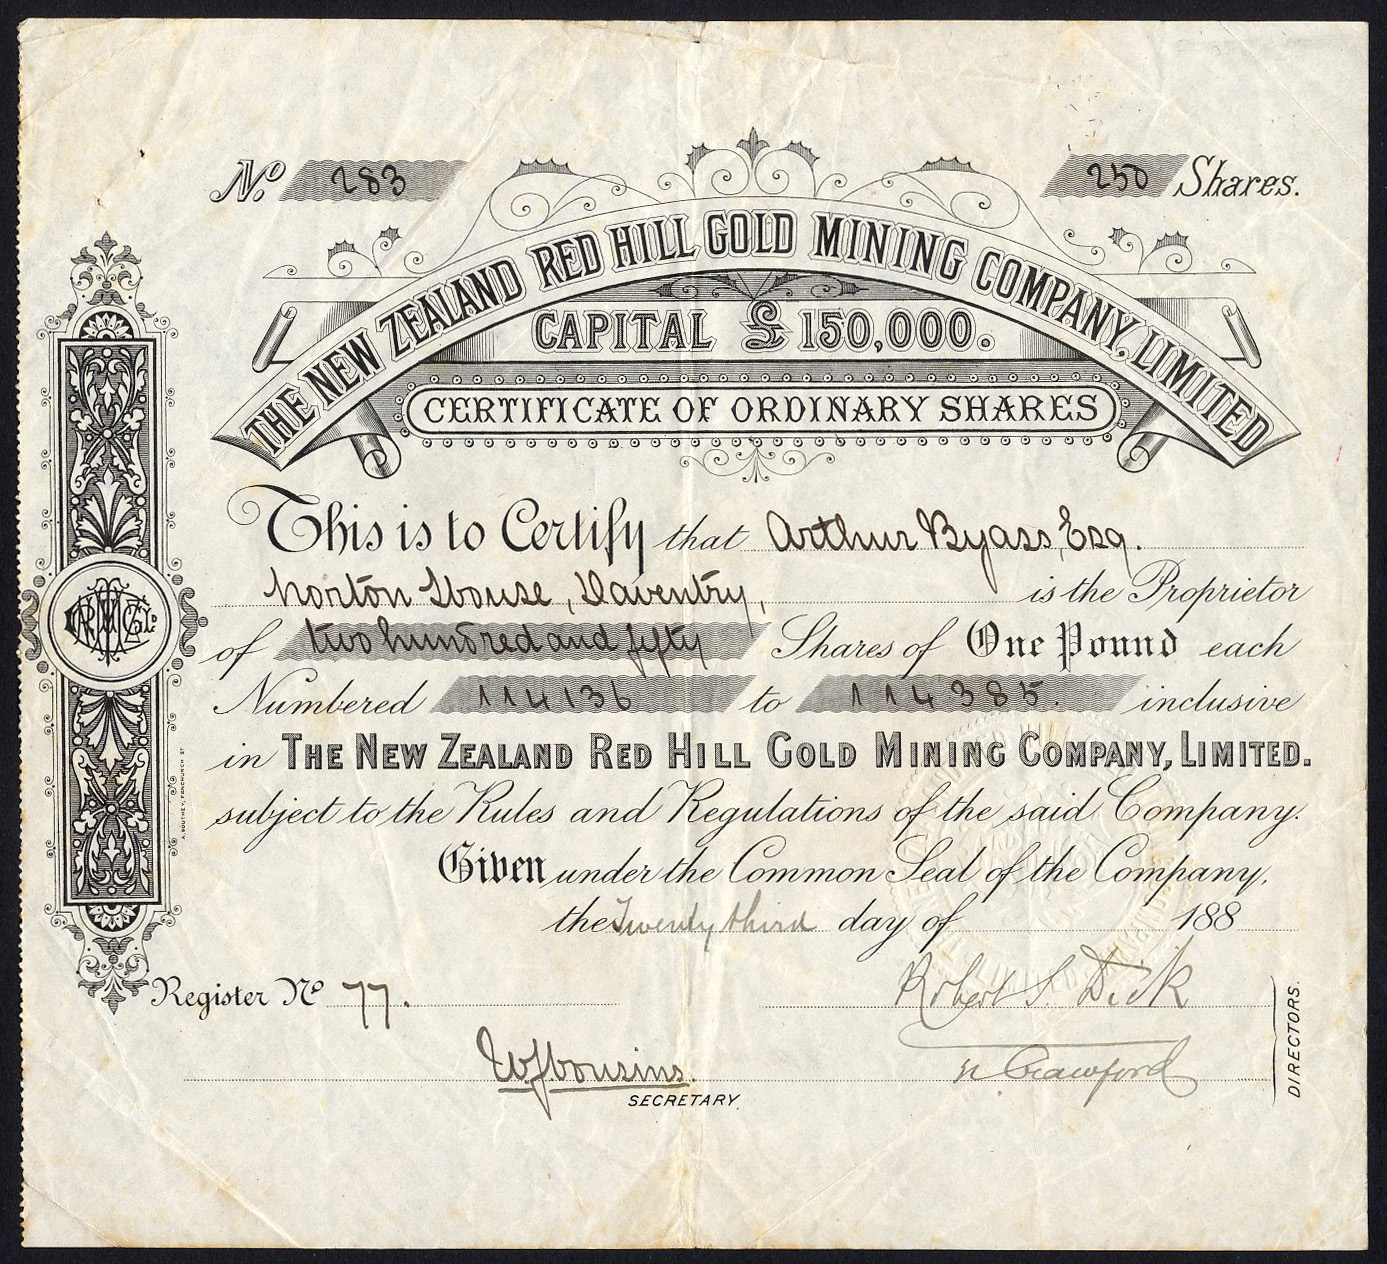 No. 283
250 Shares.
THE NEW ZEALAND RED HILL GOLD MINING COMPANY, LIMITED
CAPITAL £150,000.
CERTIFICATE OF ORDINARY SHARES
This is to Certify that Arthur Byass, Esq.
Norton House, Daventry, is the Proprietor
of two hundred and fifty Shares of One Pound each
Numbered 114136 to 114385. inclusive
in THE NEW ZEALAND RED HILL GOLD MINING COMPANY, LIMITED.
subject to the Rules and Regulations of the said Company.
Given under the Common Seal of the Company,
the Twenty third day of 188
Robert S. Dick
Register No 77.
W J Cousins.
N Crawford
SECRETARY.
DIRECTORS.
A. SOUTHEY, FENCHURCH ST